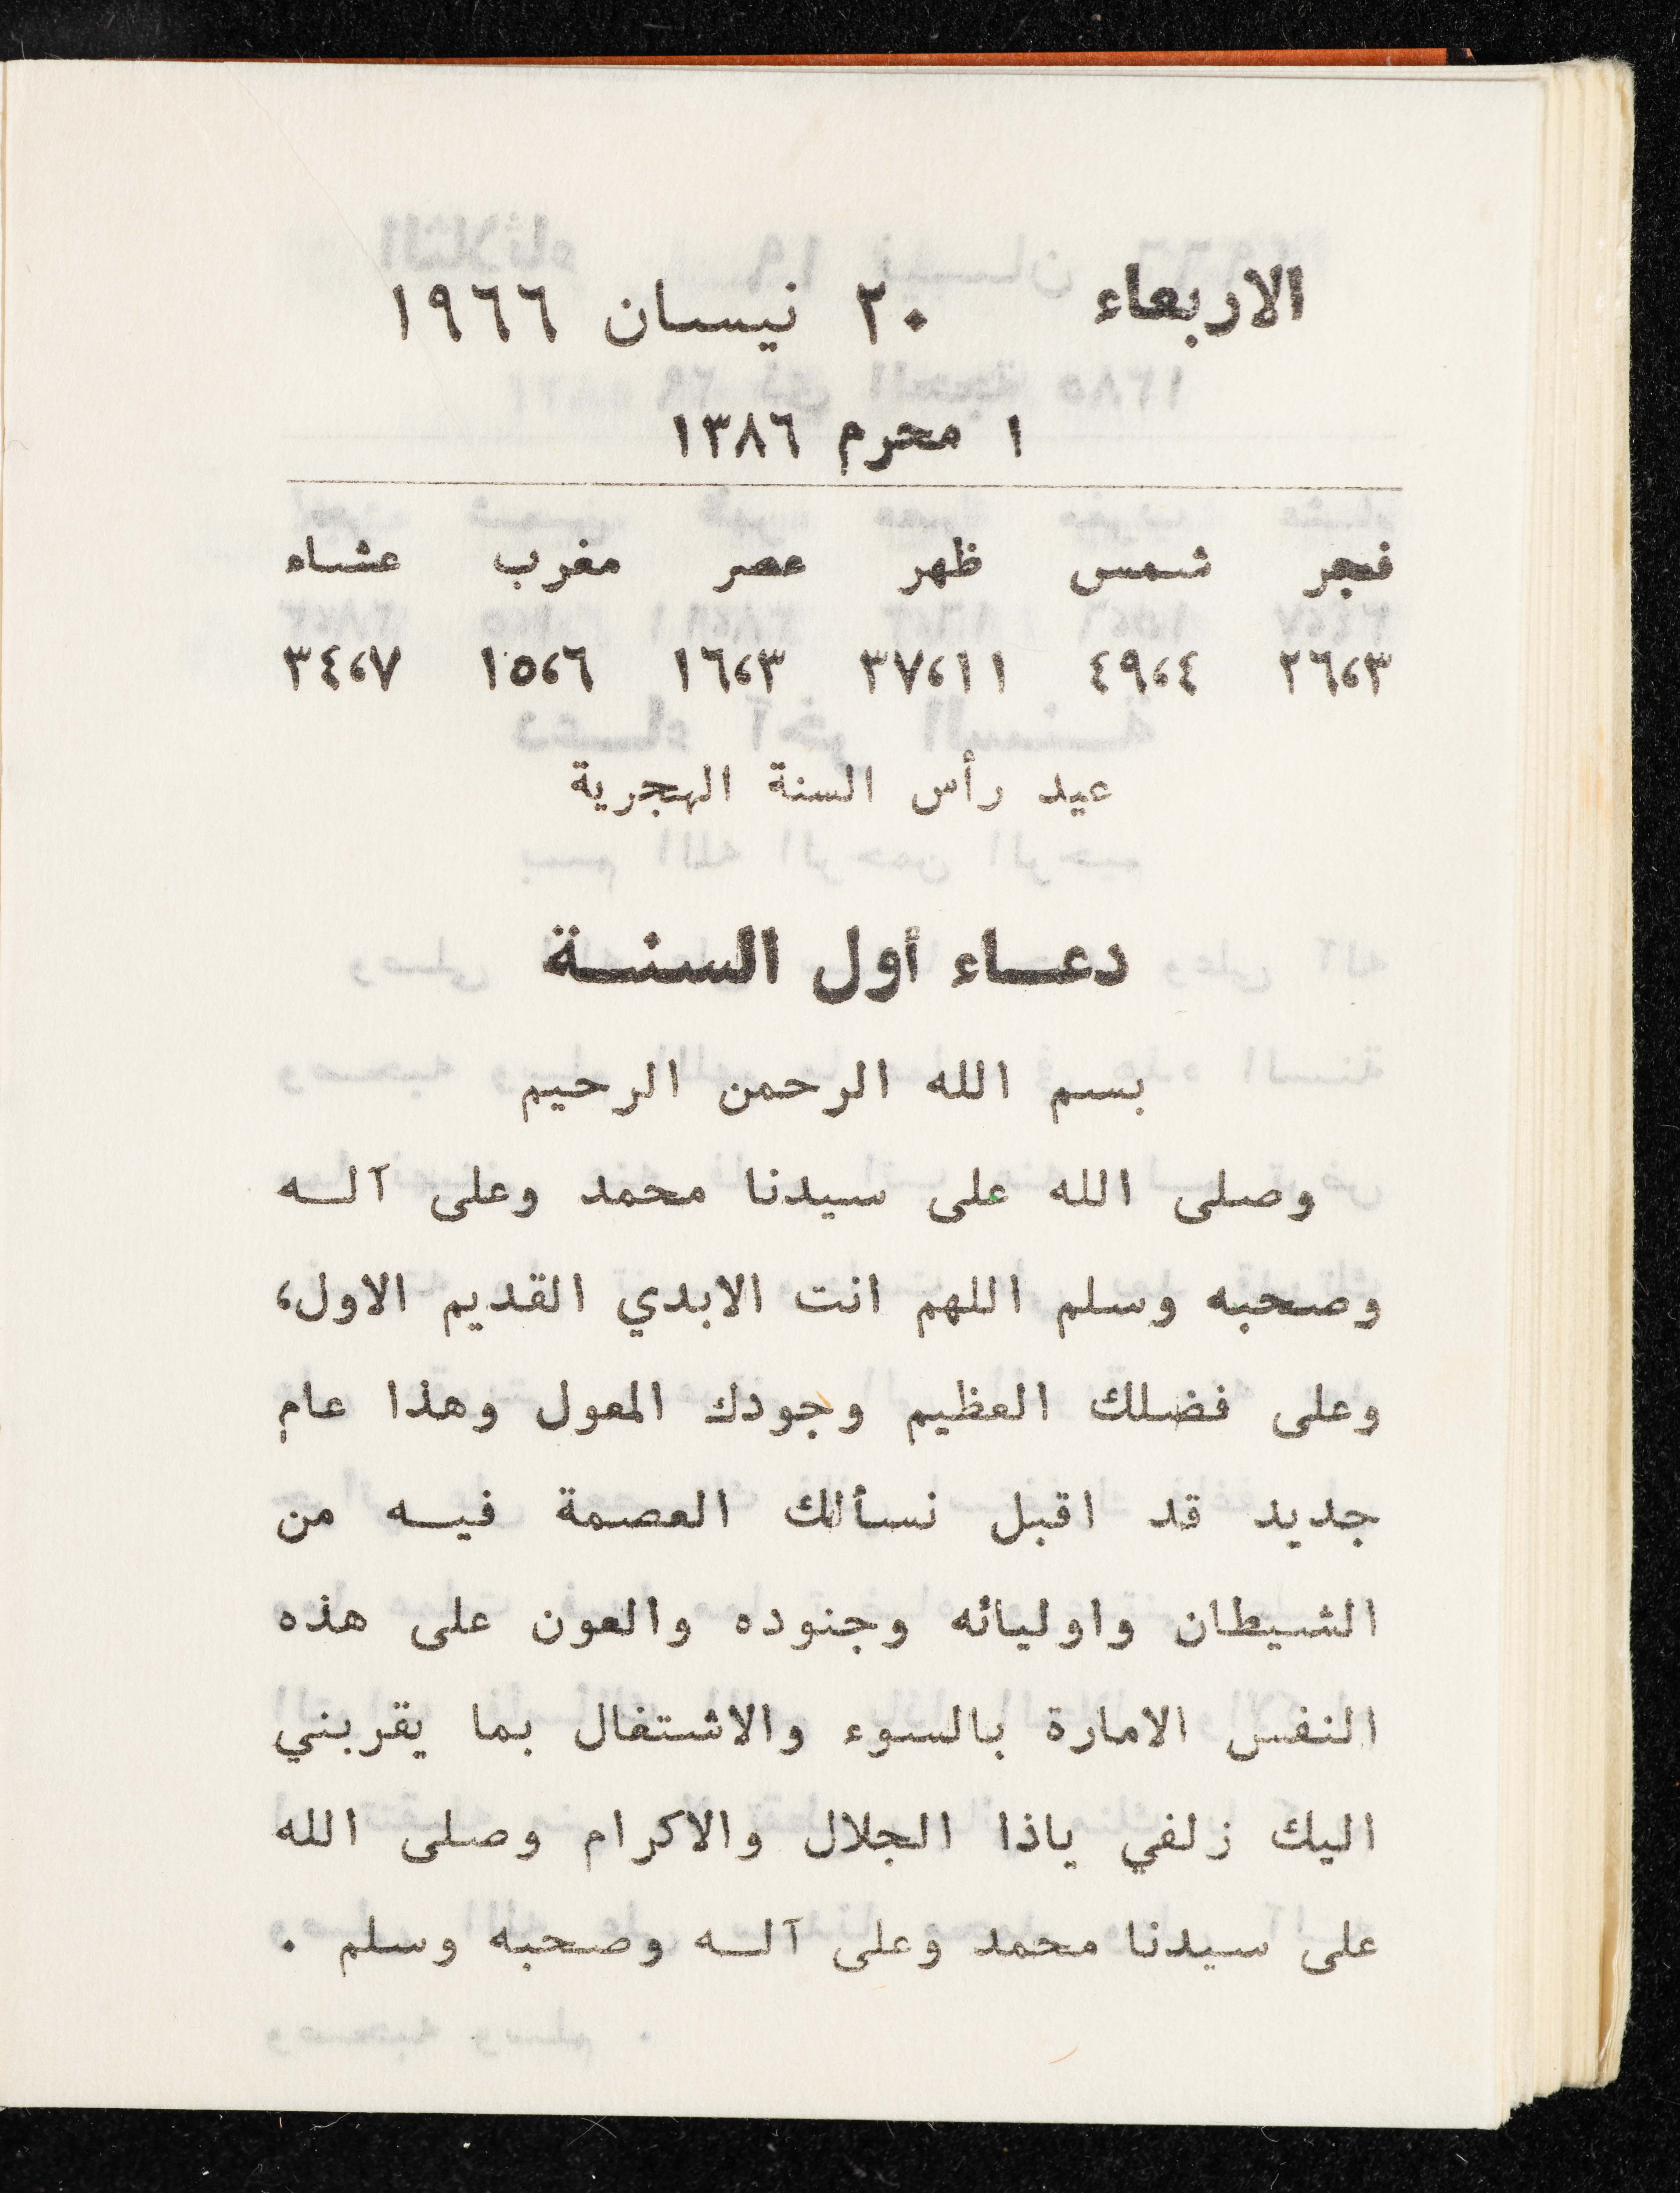 الاربعاء ٢٠ نيسان ١٩٦٦
١ محرم ١٣٨٦
فجر شمس ظهر عصر مغرب عشاء
٢٦،٣ ٤٩،٤ ٣٧،١١ ١٦،٣ ١٥،٦ ٣٤،٧
عيد رأس السنة الهجرية
دعـــاء أول السنـــة
بسم الله الرحمن الرحيم
وصلى الله على سيدنا محمد وعلى آلـــه
وصحبه وسلم اللهم انت الابدي القديم الاول،
وعلى فضلك العظيم وجودك المعول وهذا عام
جديد قد اقبل نسألك العصمة فيـــه من
الشيطان واوليائه وجنوده والعون على هذه
النفس الامارة بالسوء والاشتغال بما يقربني
اليك زلفي ياذا الجلال والاكرام وصلى الله
على سيدنا محمد وعلى آلـــه وصحبه وسلم .